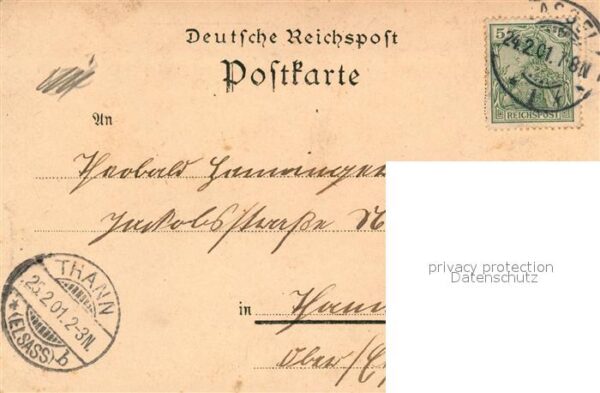 Deutsche Reichspost
Postkarte
5
REICHSPOST
24.2.01.7-8N
An
Theobald
Jacobsstraße N
privacy protection
Datenschutz
THANN
25.2.01.2-3N.
*(ELSASS) b
in Thann
Ober/E